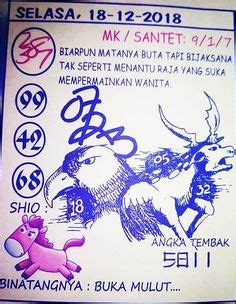 SELASA, 18-12-2018
MK / SANTET: 9/1/7
BIARPUN MATANYA BUTA TAPI BIJAKSANA
TAK SEPERTI MENANTU RAJA YANG SUKA
MEMPERMAINKAN WANITA.
99
42
68
05
32
18
SHIO :
ANGKA TEMBAK
5811
BINATANGNYA : BUKA MULUT....